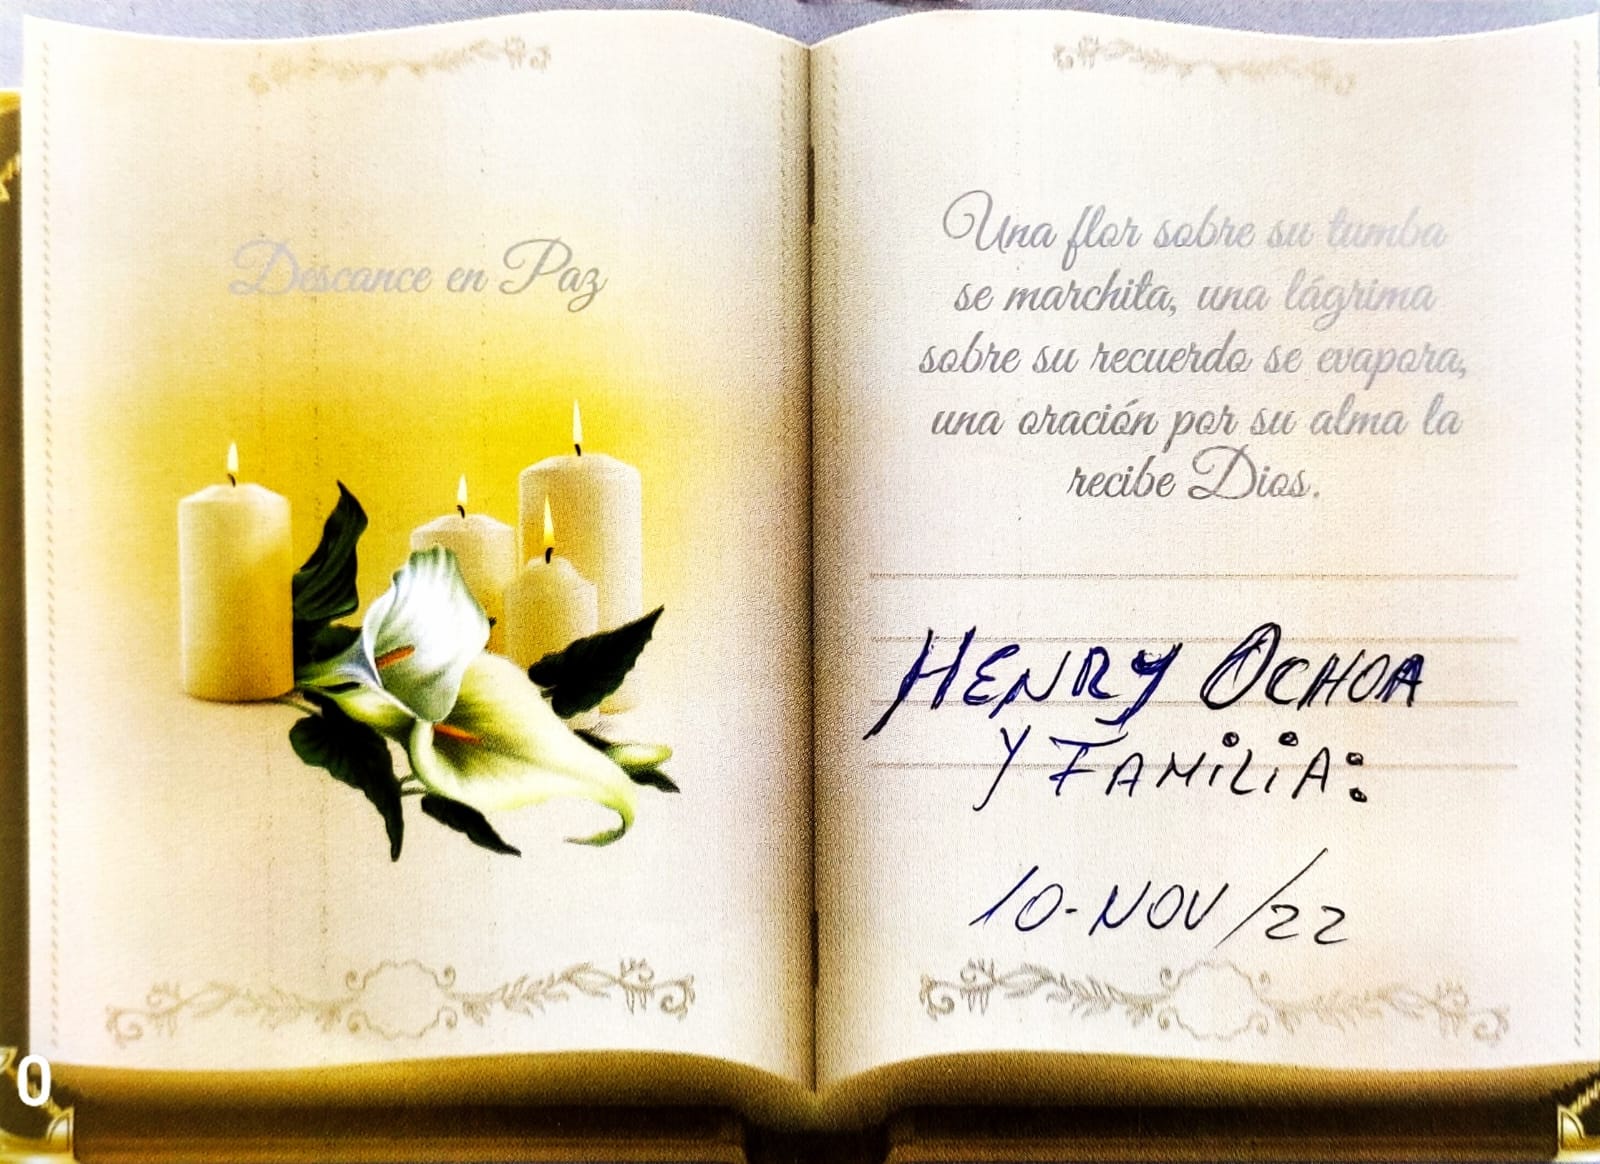 Descance en Paz
Una flor sobre su tumba
se marchita, una lágrima
sobre su recuerdo se evapora,
una oración por su alma la
recibe Dios.
HENRY OCHOA
Y FAMiLiA:
10-NOV/22
0